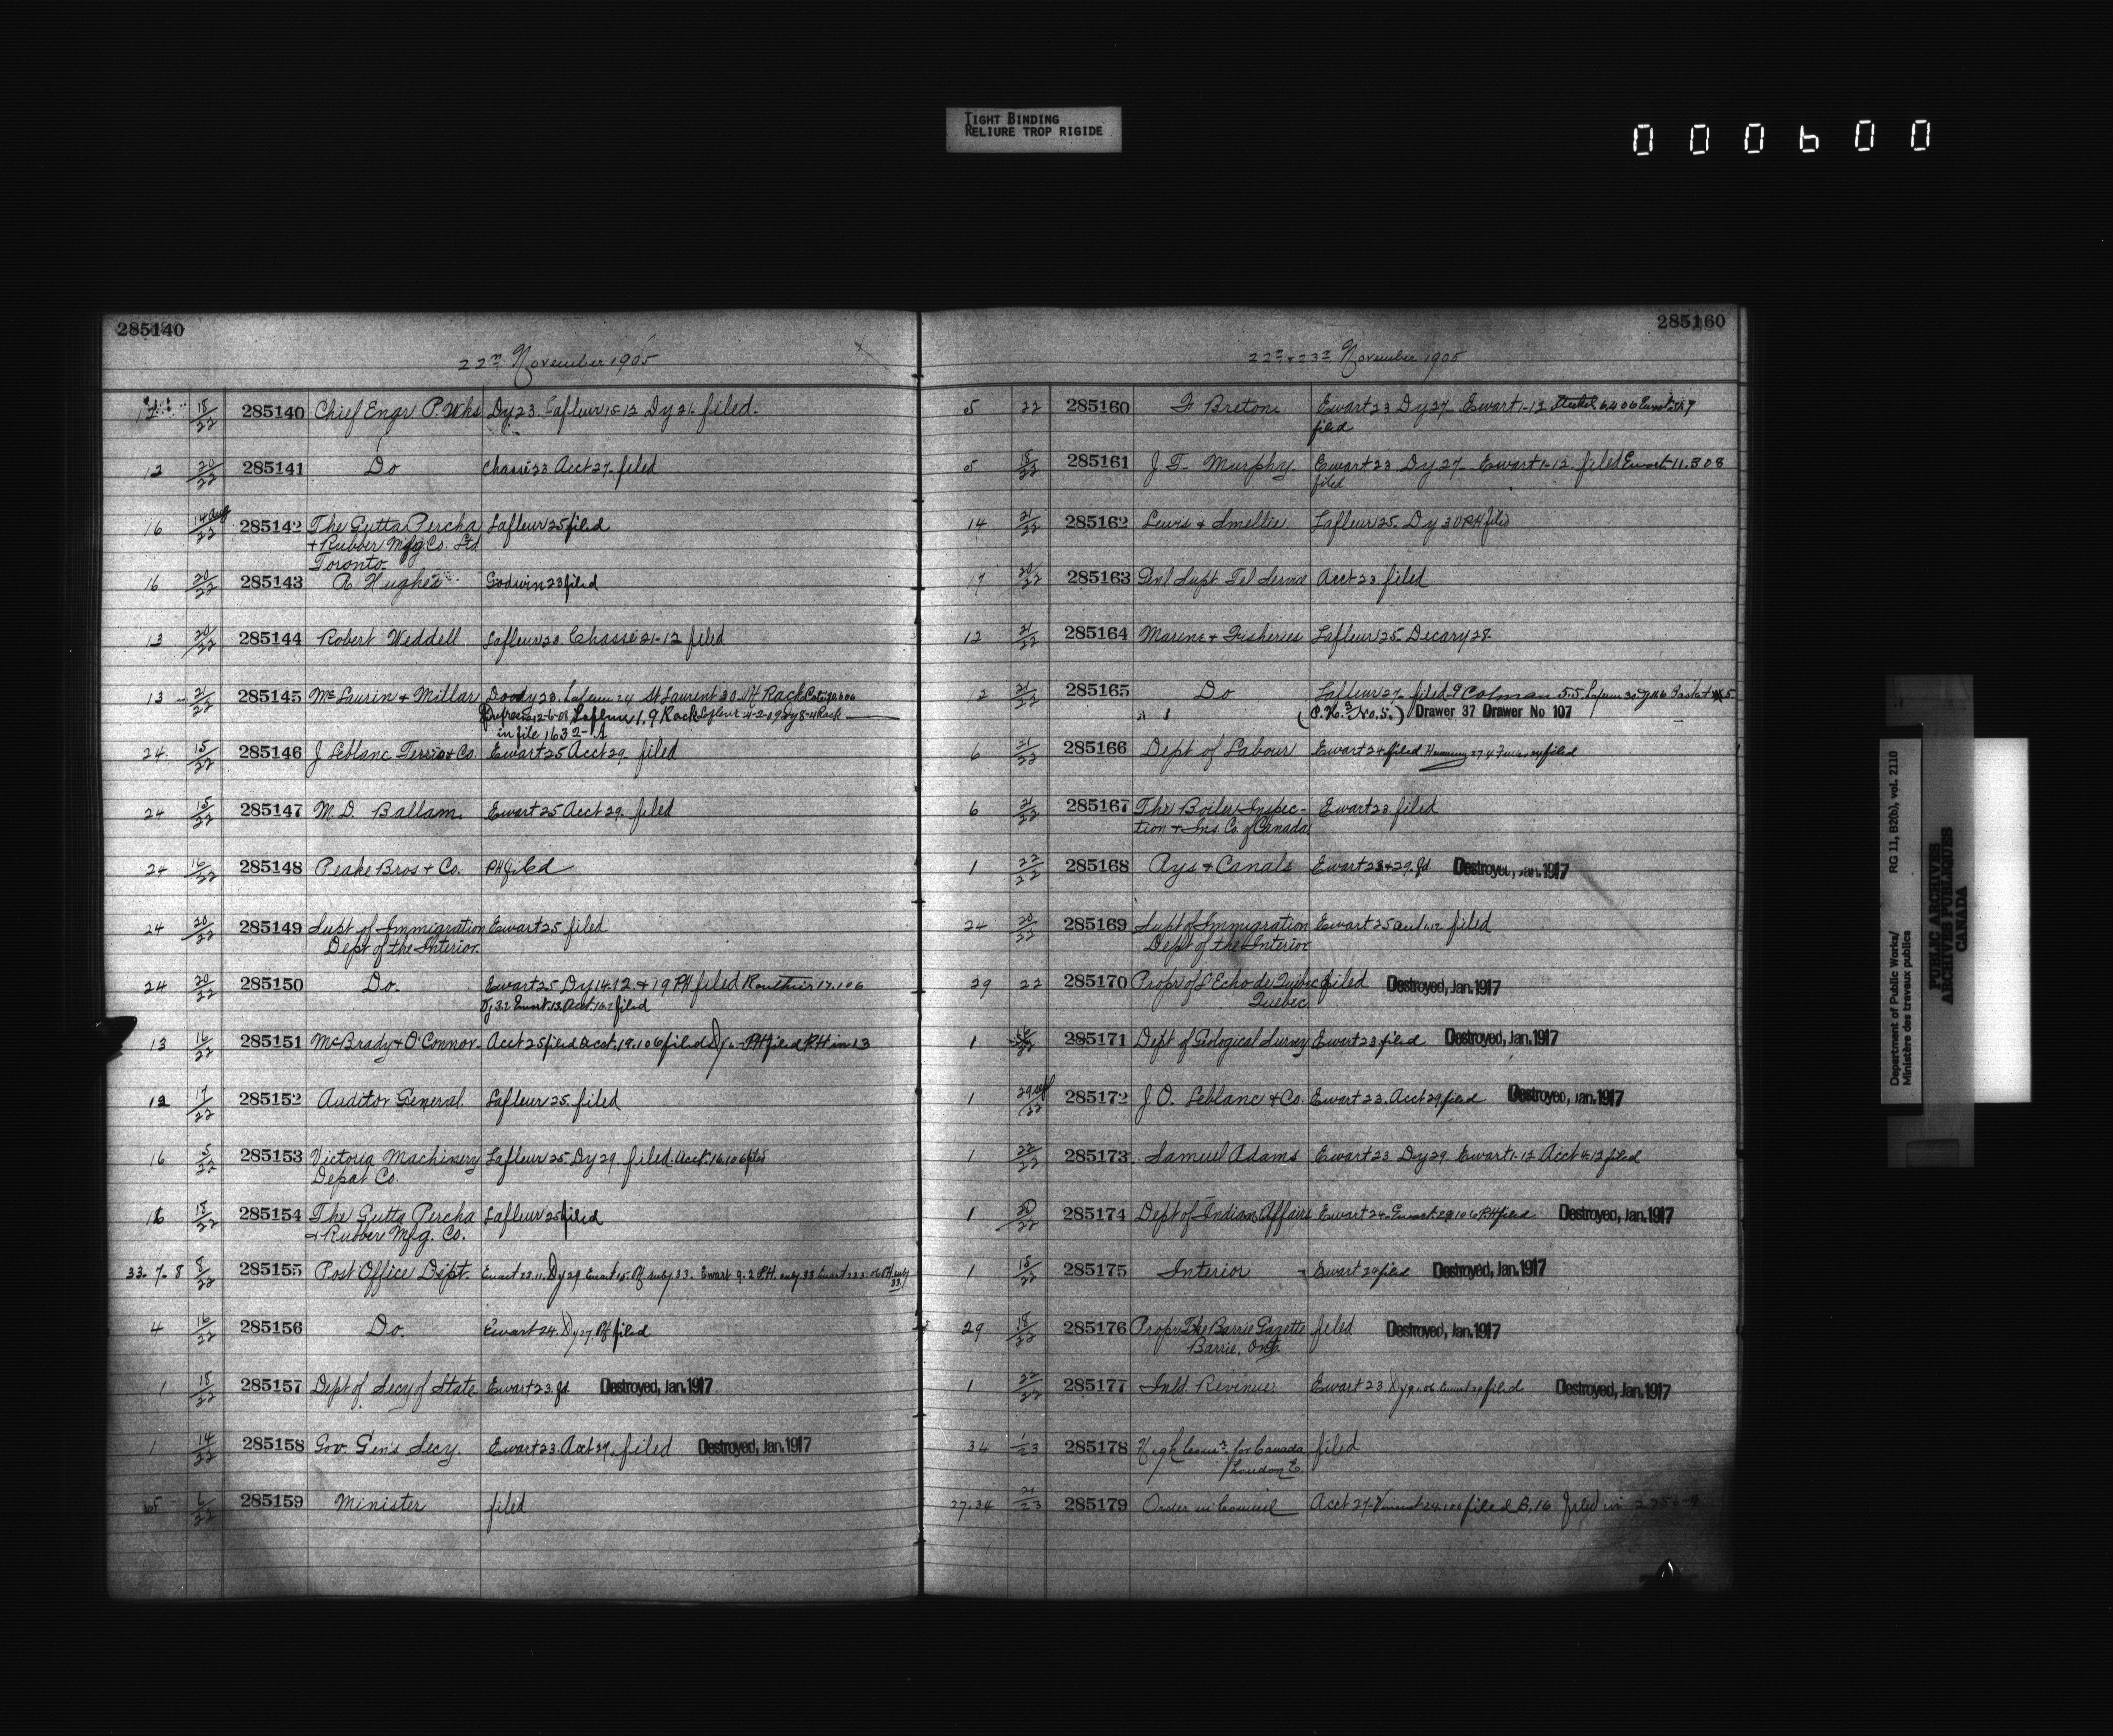 TIGHT BINDING
RELIURE TROP RIGIDE
000600
285140
22nd November 1905
18/22 285140 Chief Engr P. Wks Dy 23. Lafleur 15-12 Dy 21. filed.
12 20/22 285141 Do Chassé 23 Acct 27. filed
16 14 Aug/22 285142 The Gutta Percha Lafleur 25 filed
+ Rubber Mfg Co. Ltd
Toronto.
16 20/22 285143 R Hughes Godwin 23 filed
13 20/22 285144 Robert Weddell Lafleur 23 Chassé 21-12 filed
13 21/22 285145 McLaurin + Millar Doody 23. Lafleur 24 St Laurent 30. Rack
Lafleur 1.9 Rack Lafleur
in file 1632-A
24 15/22 285146 J Leblanc Terrio & Co. Ewart 25 Acct 29. filed
24 15/22 285147 M. D. Ballam. Ewart 25 Acct 29. filed
24 16/22 285148 Peake Bros + Co. PH filed
24 20/22 285149 Supt of Immigration Ewart 25 filed
Dept of the Interior.
24 20/22 285150 Do. Ewart 25 Dy 14.12 & 19 PH filed Routhier 17.106
filed
13 16/22 285151 McBrady + O'Connor. Acct 25 filed Acct. 19.106 filed PH filed PH in 13
12 17/22 285152 Auditor General. Lafleur 25. filed
16 5/22 285153 Victoria Machinery Lafleur 25 Dy 29. filed. Acct 16.106 filed
Depot Co.
16 18/22 285154 The Gutta Percha Lafleur 25 filed
& Rubber Mfg. Co.
33. 7. 8 8/22 285155 Post Office Dept. Ewart 23.11. Dy 29 Ewart 33. Ewart 9.2 P.H. 33 Ewart
33.
4 16/22 285156 Do. Ewart 24. Dy 27. filed
1 18/22 285157 Dept of Secy of State Ewart 23. fd. Destroyed, Jan. 1917
1 14/22 285158 Gov. Gen's Secy. Ewart 23. Acct 27. filed Destroyed, Jan. 1917
6/22 285159 Minister filed
285160
22nd & 23rd November 1905
5 22 285160 F Breton. Ewart 23 Dy 27 Ewart 1-12
filed
5 18/22 285161 J. T. Murphy. Ewart 23 Dy 27 Ewart 1-12. filed Ewart 11.308
filed
14 21/22 285162 Lewis + Smellie Lafleur 25. Dy 30 PH filed
17 20/22 285163 Genl Supt Tel Service Acct 23. filed
12 21/22 285164 Marine + Fisheries Lafleur 25. Decary 28.
12 21/22 285165 Do Lafleur 27. filed. Colman 5.5
(P.H. No. 5.) Drawer 37 Drawer No 107
6 21/22 285166 Dept of Labour Ewart 24 filed filed
6 21/22 285167 The Boiler Inspec- Ewart 23. filed
tion + Ins. Co. of Canada
1 22/22 285168 Rys + Canals Ewart 23 + 29. fd. Destroyed, Jan. 1917
24 20/22 285169 Supt of Immigration Ewart 25 filed
Dept of the Interior
29 22 285170 Propr of L'Echo de Quebec filed Destroyed, Jan. 1917
Quebec
1 285171 Dept of Geological Survey Ewart 23. filed Destroyed, Jan. 1917
1 285172 J. O. Leblanc & Co. Ewart 23. Acct 29 filed Destroyed, Jan. 1917
1 22/22 285173 Samuel Adams Ewart 23 Dy 29 Ewart 1-12 Acct 4.12 filed
1 285174 Dept of Indian Affairs Ewart 24. Ewart 29.106 PH filed Destroyed, Jan. 1917
1 15/22 285175 Interior Ewart 24 filed Destroyed, Jan. 1917
29 18/22 285176 Propr The Barrie Gazette filed Destroyed, Jan. 1917
Barrie, Ont.
1 22/22 285177 Inld. Revenue Ewart 23. filed Destroyed, Jan. 1917
34 1/23 285178 High Comr. for Canada filed
London E.
27.34 21/23 285179 Order in Council Acct 27 filed B. 16 filed in
Department of Public Works/ RG 11, B2(b), vol. 2110
Ministère des travaux publics
PUBLIC ARCHIVES
ARCHIVES PUBLIQUES
CANADA